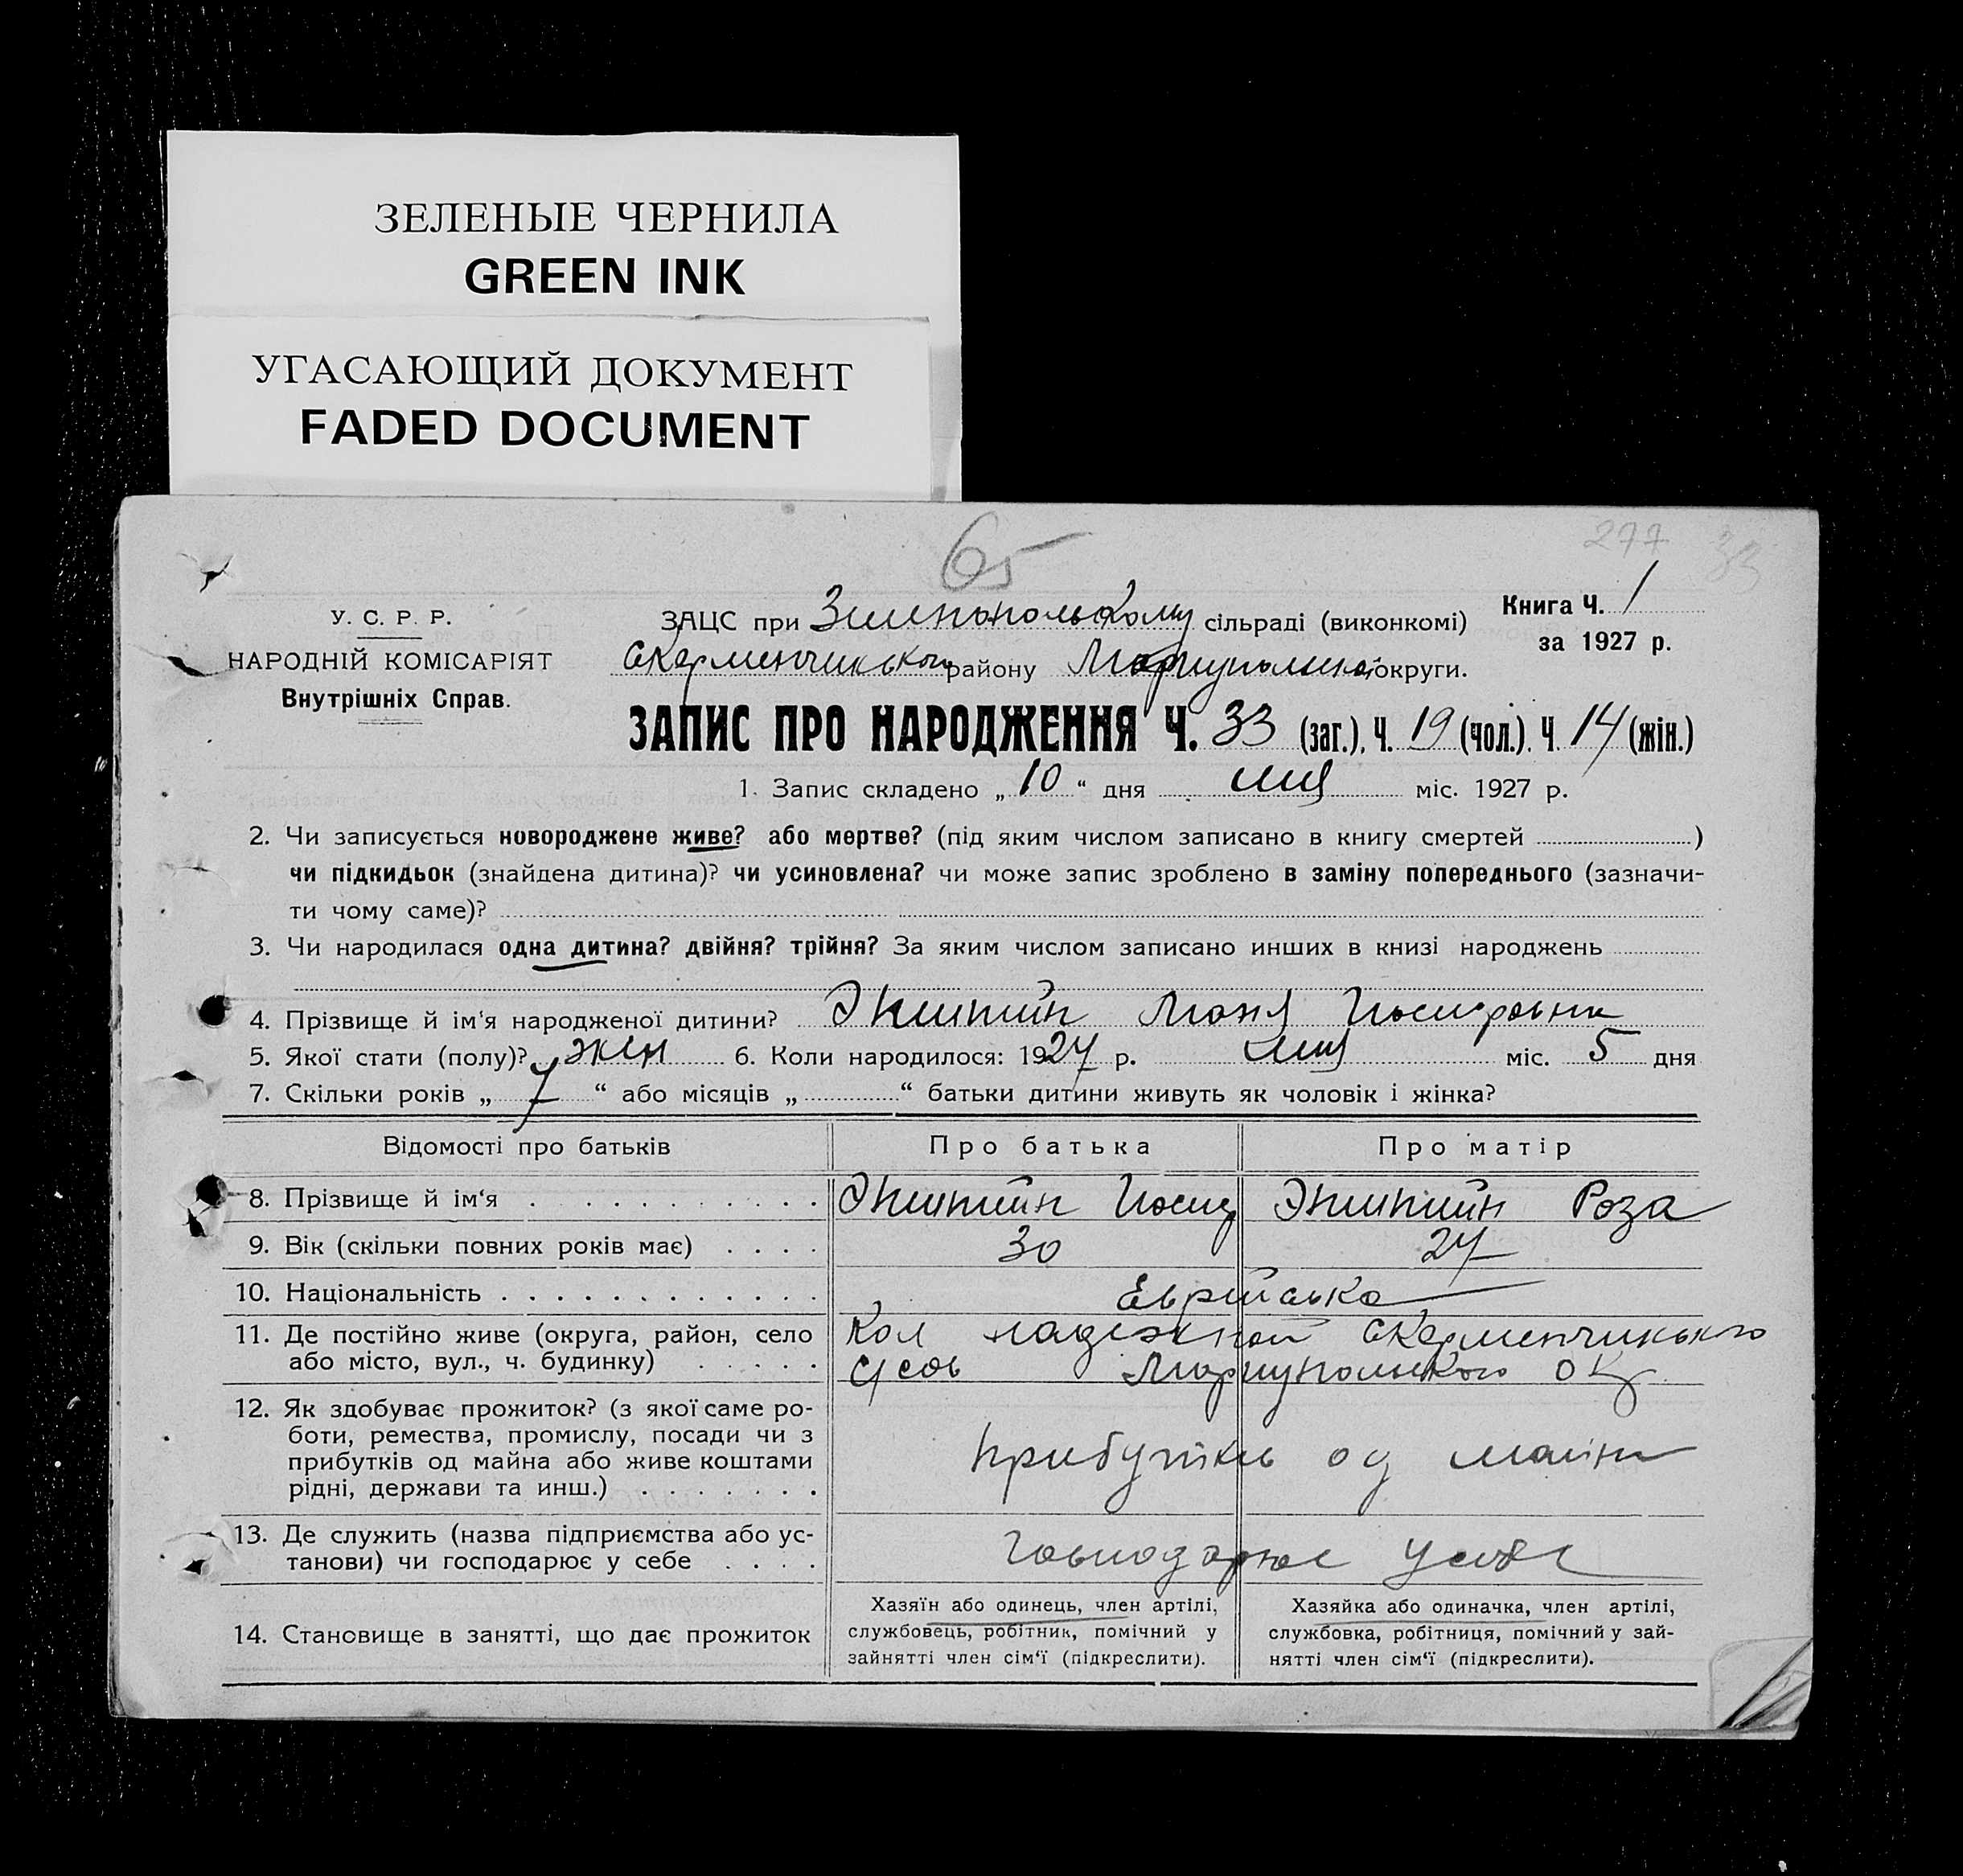 ЗЕЛЕНЫЕ ЧЕРНИЛА
GREEN INK
УГАСАЮЩИЙ ДОКУМЕНТ
FADED DOCUMENT
65
277 33
У. С. Р. Р.
НАРОДНІЙ КОМІСАРІЯТ
Внутрішніх Справ.
ЗАЦС при Зеленопольскому сільраді (виконкомі)
Книга Ч. 1
за 1927 р.
Керменчикського району Мариупольскої округи.
ЗАПИС ПРО НАРОДЖЕННЯ Ч. 33 (заг.), Ч. 19 (чол.). Ч. 14 (жін.)
1. Запис складено „ 10 “ дня міс. 1927 р.
2. Чи записується новороджене живе? або мертве? (під яким числом записано в книгу смертей )
чи підкидьок (знайдена дитина)? чи усиновлена? чи може запис зроблено в заміну попереднього (зазначи-
ти чому саме)?
3. Чи народилася одна дитина? двійня? трійня? За яким числом записано инших в книзі народжень
4. Прізвище й ім'я народженої дитини? Эпштейн Маня Иосифовна
5. Якої стати (полу)? жін 6. Коли народилося: 1927 р. міс. 5 дня
7. Скільки років „ 7 “ або місяців „ “ батьки дитини живуть як чоловік і жінка?
Відомості про батьків Про батька Про матір
8. Прізвище й ім‘я Эпштейн Иосиф Эпштейн Роза
9. Вік (скільки повних років має) 30 27
10. Національність Еврейська
11. Де постійно живе (округа, район, село Кол надежной Керменчикського
або місто, вул., ч. будинку) Мариупольского ок
12. Як здобуває прожиток? (з якої саме ро-
боти, ремества, промислу, посади чи з
прибутків од майна або живе коштами
рідні, держави та инш.) прибутків од маіна
13. Де служить (назва підприємства або ус-
танови) чи господарює у себе господарює у себе
14. Становище в занятті, що дає прожиток
Хазяїн або одинець, член артілі,
службовець, робітник, помічний у
зайнятті член сім‘ї (підкреслити).
Хазяйка або одиначка, член артілі,
службовка, робітниця, помічний у зай-
нятті член сім‘ї (підкреслити).